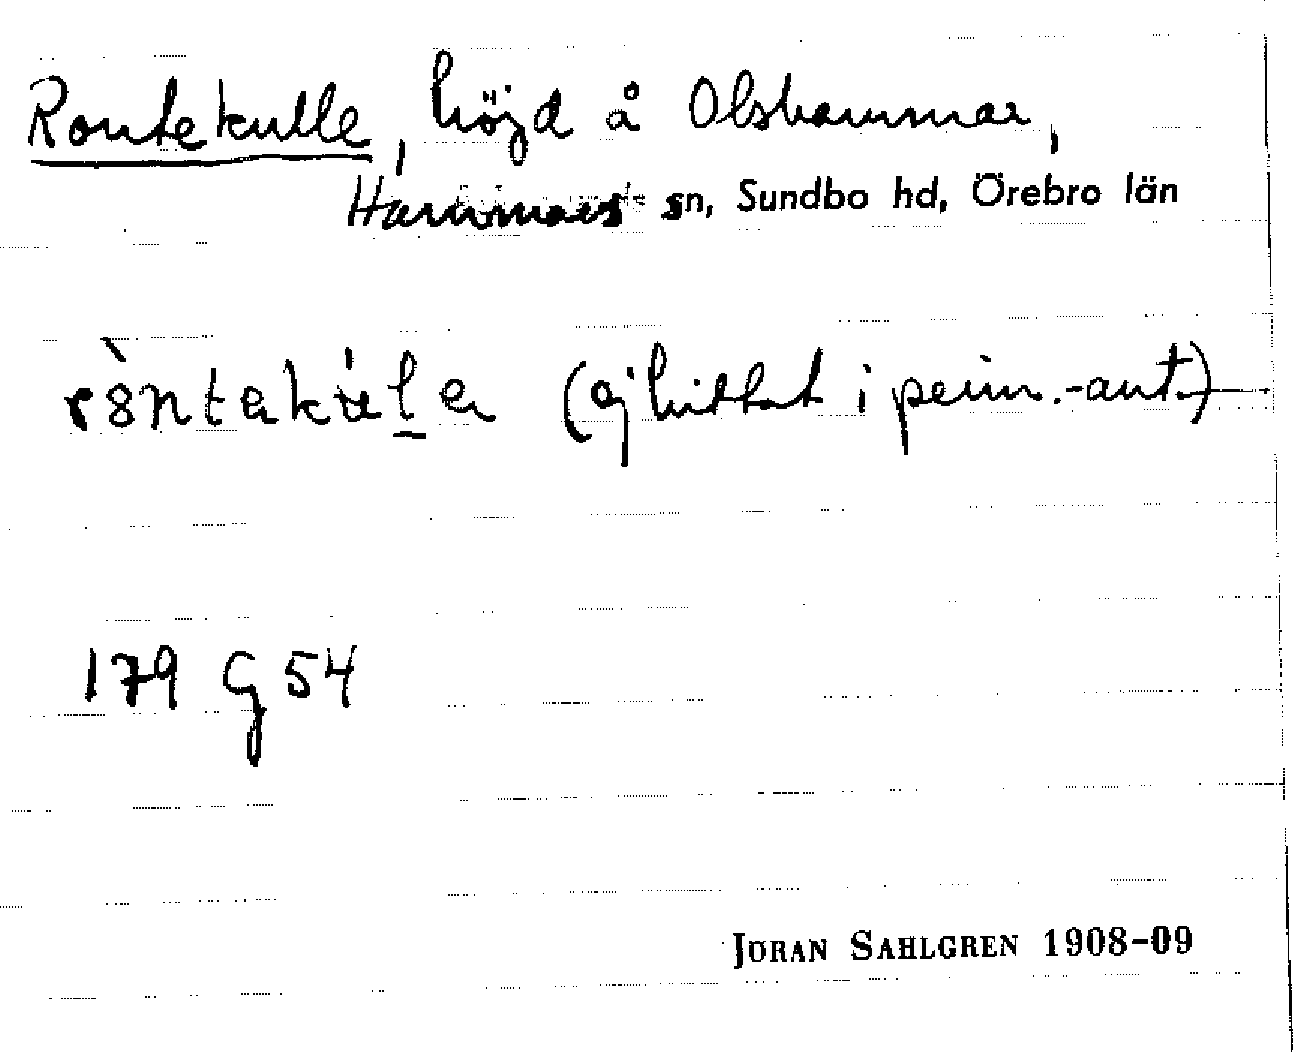 Rontekulle, höjd å Olshammar,
Hammars sn, Sundbo hd, Örebro län
(ej hittat i prim.-ant.)
179 G 54
JORAN SAHLGREN 1908-09